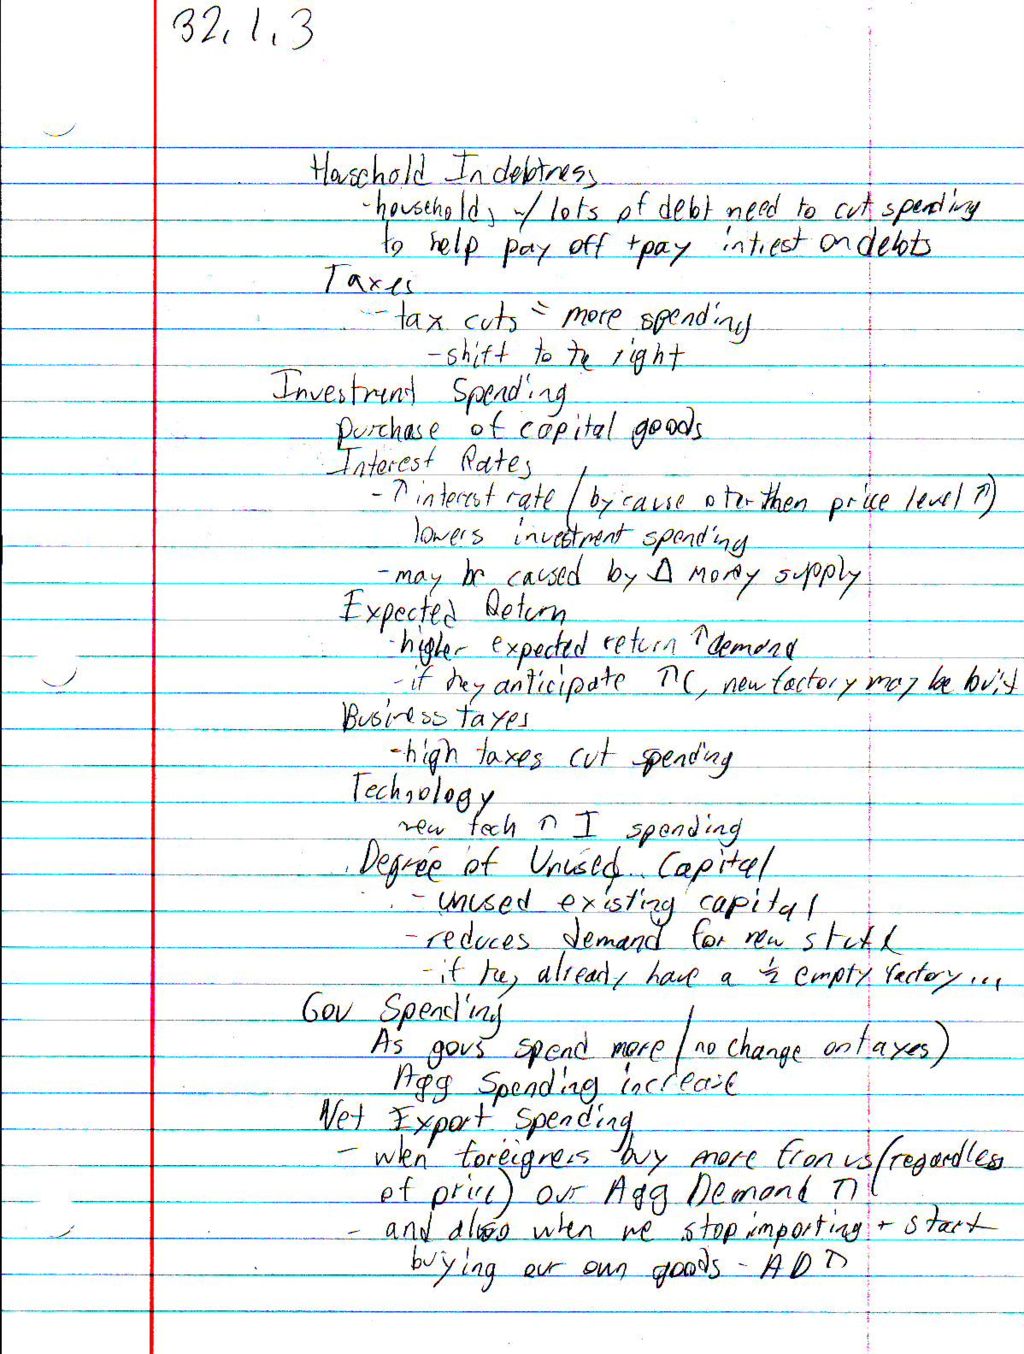 32.1.3
Household Indebtness
-households w/ lots of debt need to cut spending
to help pay off + pay intrest on debts
Taxes
- tax cuts = more spending
- shift to the right
Investment Spending
purchase of capital goods
Interest Rates
- ↑ interest rate (by cause oter then price level ↑)
lowers investment spending
- may be caused by Δ money supply
Expected Return
- higher expected return ↑ demand
- if they anticipate ↑C, new factory may be built
Business taxes
- high taxes cut spending
Technology
new tech ↑ I spending
Degree of Unused Capital
- unused existing capital
- reduces demand for new stuff
- if they already have a ½ empty factory...
Gov Spending
As govs spend more (no change on taxes)
Agg spending increase
Net Export Spending
- when foreigners buy more from us (regardless
of price) our Agg Demand ↑
- and also when we stop importing + start
buying our own goods - AD ↑